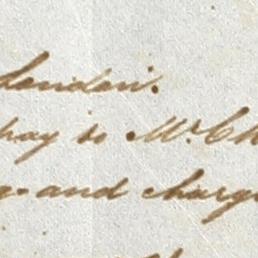 London.
pay to Mr. Ch
and charge